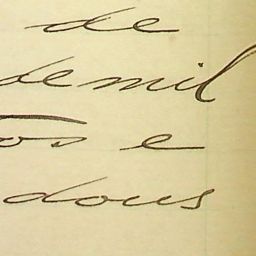 de
de mil
os e
dous